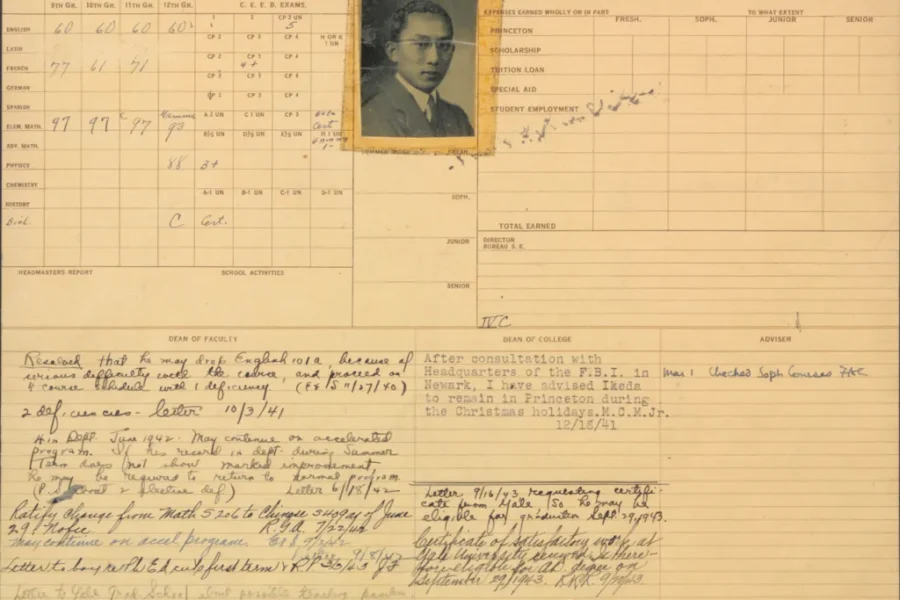 9TH GR. 10TH GR. 11TH GR. 12TH GR. C. E. E. B. EXAMS.
1 2 CP 3 UN
ENGLISH 60 60 60 60 5
LATIN CP 2 CP 3 CP 4
FRENCH 77 61 71 4+
GERMAN CP 2 CP 3 CP 4
SPANISH CP 2 CP 3 CP 4
ELEM. MATH. 97 97 97 93 A-2 UN C 1 UN CP 3
ADV. MATH.
PHYSICS 88 3+
CHEMISTRY
HISTORY A-1 UN B-1 UN C-1 UN D-1 UN
Biol. C Cert.
HEADMASTERS REPORT SCHOOL ACTIVITIES
FRESH.
SOPH.
JUNIOR
SENIOR
EXPENSES EARNED WHOLLY OR IN PART TO WHAT EXTENT
FRESH. SOPH. JUNIOR SENIOR
PRINCETON
SCHOLARSHIP
TUITION LOAN
SPECIAL AID
STUDENT EMPLOYMENT
TOTAL EARNED
DIRECTOR
BUREAU S. E.
IV C
DEAN OF FACULTY
Resolved that he may drop English 101a, because of
serious difficulty with the course, and proceed on
4 course schedule with 1 deficiency. (11/27/40)
2 deficiencies - letter 10/3/41
in Dept. June 1942. May continue on accelerated
program. If his record in dept. during Summer
Term does not show marked improvement
he may be required to return to normal program.
2 elective def.) Letter 6/18/42
Ratify change from Math 206 to Chinese as of June
29. Notic R.G.A. 7/22/42
may continue on accel program.
Letter to boy first term
Letter to Yale Grad School about possible teaching
DEAN OF COLLEGE
After consultation with
Headquarters of the F.B.I. in
Newark, I have advised Ikeda
to remain in Princeton during
the Christmas holidays.M.C.M.Jr.
12/15/41
Letter 9/16/43 requesting certifi-
cate from Yale so he may be
eligible for graduation Sept. 29, 1943.
Certificate of satisfactory work at
Yale University received, is there-
fore eligible for AB degree on
September 29, 1943.
ADVISER
Mar 1 Checked Soph Courses